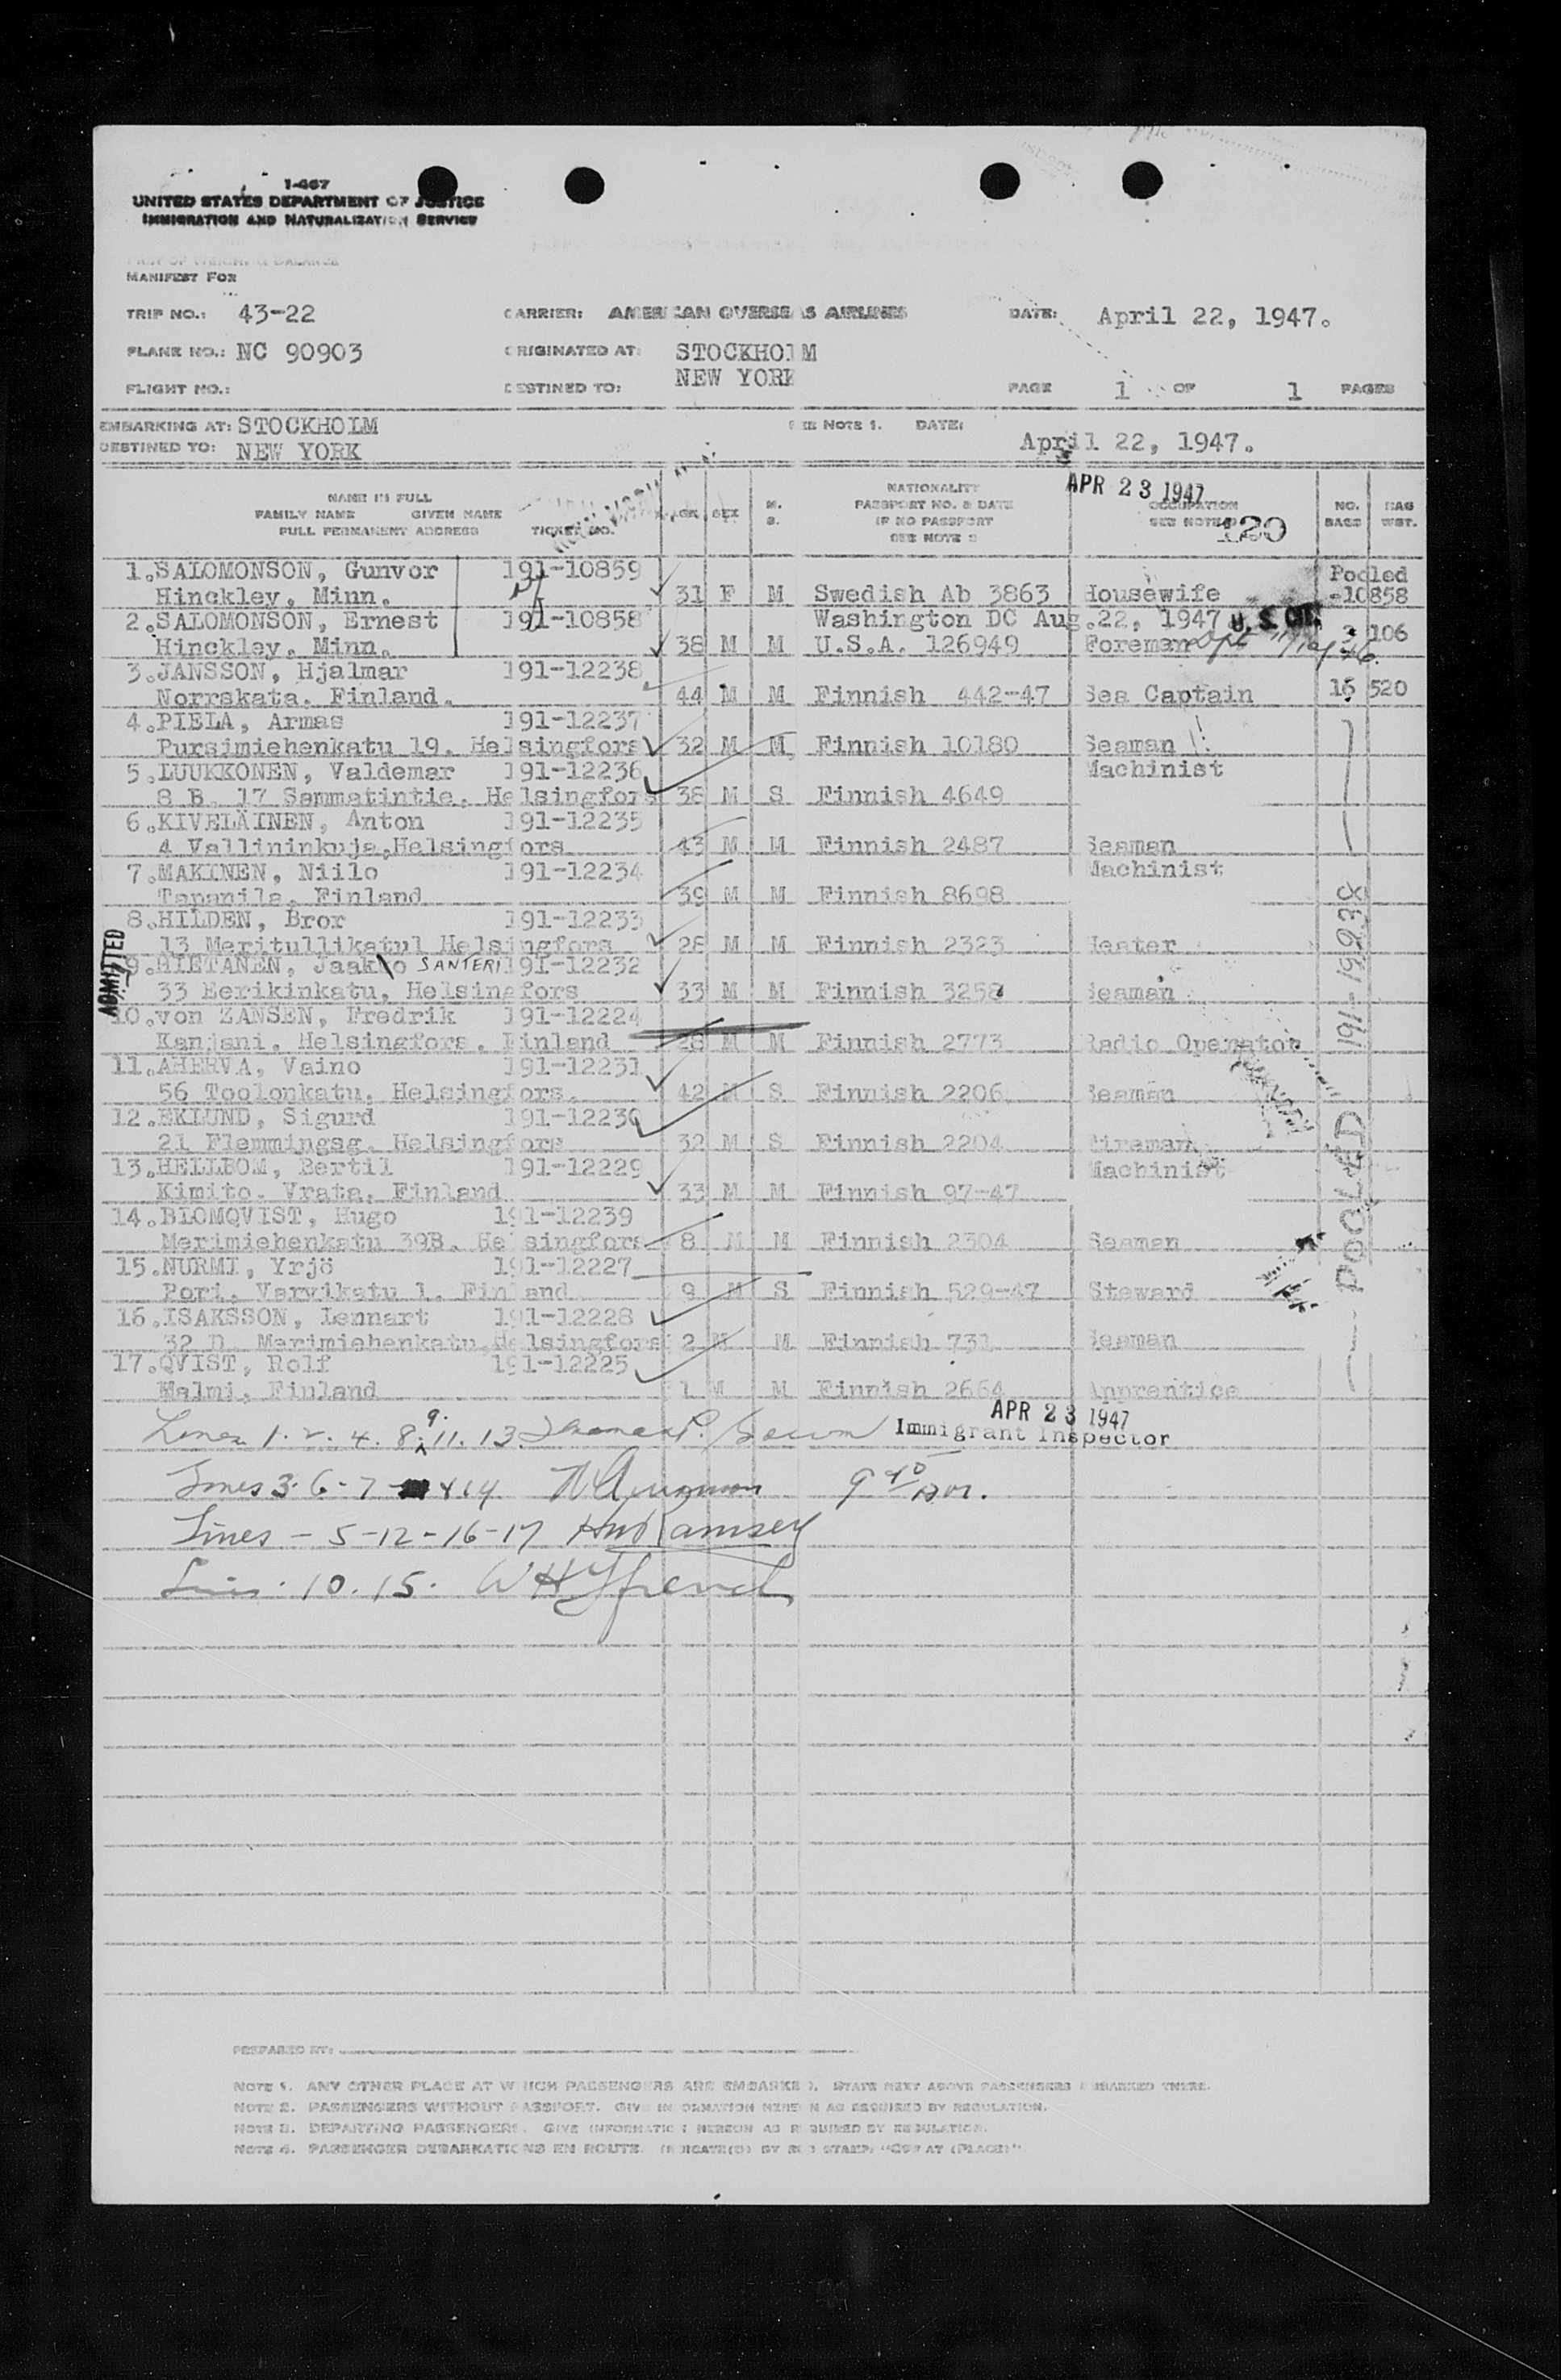 1-467
UNITED STATES DEPARTMENT OF JUSTICE
IMMIGRATION AND NATURALIZATION SERVICE
MANIFEST FOR
TRIP NO.: 43-22 CARRIER: AMERICAN OVERSEAS AIRLINES DATE: April 22, 1947.
PLANE NO.: NC 90903 ORIGINATED AT: STOCKHOLM
FLIGHT NO.: DESTINED TO: NEW YORK PAGE 1 OF 1 PAGES
EMBARKING AT: STOCKHOLM SEE NOTE 1. DATE:
DESTINED TO: NEW YORK April 22, 1947.
APR 23 1947
NAME IN FULL
FAMILY NAME GIVEN NAME
FULL PERMANENT ADDRESS TICKET NO. AGE SEX M. S. NATIONALITY PASSPORT NO. & DATE IF NO PASSPORT SEE NOTE 2 OCCUPATION SEE NOTE 120 NO. BAGS BAG WGT.
1. SALOMONSON, Gunvor 191-10859 Pooled
Hinckley, Minn. 31 F M Swedish Ab 3863 Housewife -10858
2. SALOMONSON, Ernest 191-10858 Washington DC Aug.22, 1947 U.S. CIT.
Hinckley, Minn. 38 M M U.S.A. 126949 Foreman 3 106
3. JANSSON, Hjalmar 191-12238
Norrskata, Finland. 44 M M Finnish 442-47 Sea Captain 16 520
4. PIELA, Armas 191-12237
Pursimiehenkatu 19, Helsingfors 32 M M Finnish 10180 Seaman
5. LUUKKONEN, Valdemar 191-12236 Machinist
8 B. 17 Sammatintie, Helsingfors 38 M S Finnish 4649
6. KIVELÄINEN, Anton 191-12235
4 Vallininkuja, Helsingfors 43 M M Finnish 2487 Seaman
7. MAKINEN, Niilo 191-12234 Machinist
Tapanila, Finland 39 M M Finnish 8698
8. HILDEN, Bror 191-12233
13 Meritullikatu1 Helsingfors 28 M M Finnish 2323 Heater
ADMITTED
9. HIETANEN, Jaakko SANTERI 191-12232
33 Eerikinkatu, Helsingfors 33 M M Finnish 3258 Seaman
10. von ZANSEN, Fredrik 191-12224
Kanjani, Helsingfors, Finland 28 M M Finnish 2773 Radio Operator
11. AHERVA, Vaino 191-12231
56 Toolonkatu, Helsingfors. 42 M S Finnish 2206 Seaman
12. EKLUND, Sigurd 191-12230
21 Flemmingsg. Helsingfors 32 M S Finnish 2204 Fireman
13. HELLBOM, Bertil 191-12229 Machinist
Kimito, Vrata, Finland 33 M M Finnish 97-47
14. BLOMQVIST, Hugo 191-12239
Merimiehenkatu 39B, Helsingfors 8 M M Finnish 2304 Seaman
15. NURMI, Yrjö 191-12227
Pori, Varvikatu 1, Finland 9 M S Finnish 529-47 Steward
16. ISAKSSON, Lennart 191-12228
32 D. Merimiehenkatu, Helsingfors 2 M M Finnish 731 Seaman
17. QVIST, Rolf 191-12225
Malmi, Finland 1 M M Finnish 2664 Apprentice
POOLED 191-12238
APR 23 1947
Lines 1. 2. 4. 8. 9. 11. 13 Immigrant Inspector
Lines 3-6-7 & 14 9 40 am.
Lines - 5-12-16-17 HW Ramsey
Lines. 10. 15. WH French
PREPARED BY:
NOTE 1. ANY OTHER PLACE AT WHICH PASSENGERS ARE EMBARKED, STATE NEXT ABOVE PASSENGERS EMBARKED THERE.
NOTE 2. PASSENGERS WITHOUT PASSPORT. GIVE INFORMATION HEREON AS REQUIRED BY REGULATION.
NOTE 3. DEPARTING PASSENGERS. GIVE INFORMATION HEREON AS REQUIRED BY REGULATION.
NOTE 4. PASSENGER DEBARKATIONS EN ROUTE. INDICATE(D) BY RED STAMP, "OFF AT (PLACE)"